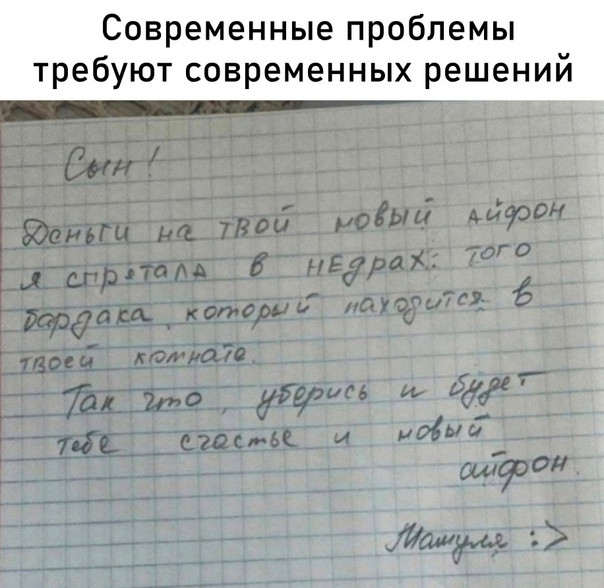 Современные проблемы
требуют современных решений
Сын!
Деньги на твой новый айфон
я спрятала в недрах: того
бардака, который находится в
твоей комнате.
Так что, уберись и будет
тебе счастье и новый
айфон.
Мамуля :>